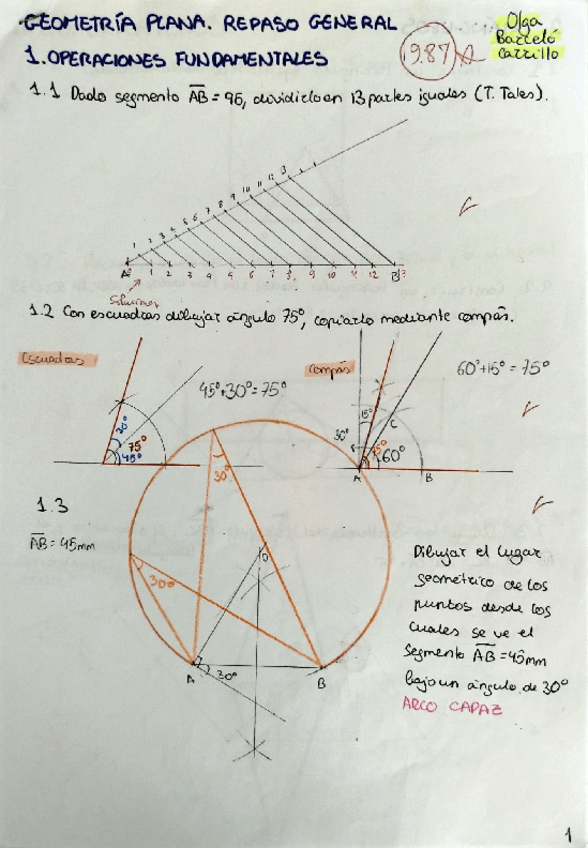 GEOMETRÍA PLANA. REPASO GENERAL
Olga
Barceló
Carrillo
9.87
1. OPERACIONES FUNDAMENTALES
1.1 Dado segmento AB = 95, dividirlo en 13 partes iguales (T. Tales).
1 2 3 4 5 6 7 8 9 10 11 12 13
A 1 2 3 4 5 6 7 8 9 10 11 12 B 13
1.2 Con escuadras dibujar ángulo 75º, copiarlo mediante compás.
Escuadras
45º+30º=75º
30º
75º
45º
compás
60º+15º = 75º
15º
30º
C
75º
60º
A
B
1.3
AB = 45mm
30º
30º
O
A
30º
B
Dibujar el lugar
geométrico de los
puntos desde los
cuales se ve el
segmento AB = 45mm
bajo un ángulo de 30º
ARCO CAPAZ
1